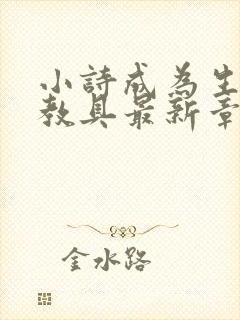 小詩成為生
教具最新章
金水路